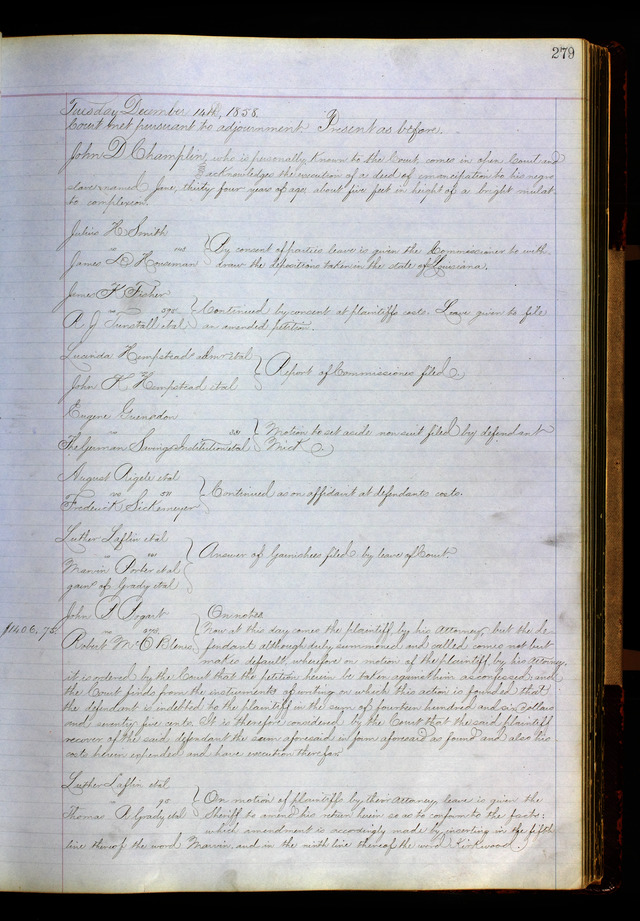 279
Tuesday December 14th, 1858.
Court met pursuant to adjournment. Present as before.
John D Champlin, who is personally known to the Court comes in open Court and
acknowledges the execution of a deed of emancipation to his negro
slave named Jane, thirty four years of age, about five feet in height of a bright mulat-
to complexion.
Julius H Smith
vs
James D Houseman
By consent of parties leave is given the Commissioner to with-
draw the depositions taken in the state of Louisiana.
K Fisher
vs
R. J. Tunstall etal
Continued by consent at plaintiffs costs. Leave given to file
an amended petition.
Lucinda Hempstead admr etal
John K Hempstead etal
Report of Commissioner filed
Eugene
vs
The German Savings Institution etal
Motion to set aside non suit filed by defendant
August etal
vs
Frederick Sickemeyer
Continued as on affidavit at defendants costs.
Luther Laflin etal
vs
Marvin Porter etal
garns of Grady etal
Answer of Garnishees filed by leave of Court.
John
$1406.75.
vs
Robert
On notes
Now at this day comes the plaintiff by his Attorney, but the de-
fendant although duly summoned and called comes not but
makes default, wherefore on motion of the plaintiff by his Attorney,
it is ordered by the Court that the petition herein be taken against him as confessed, and
the Court finds from the instruments of writing on which this action is founded that
the defendant is indebted to the plaintiff in the sum of fourteen hundred and six dollars
and seventy five cents. It is therefore considered by the Court that the said plaintiff
recover of the said defendant the sum aforesaid in form aforesaid as found and also his
costs herein expended and have execution therefor.
Luther Laflin etal
vs
Thomas A Grady etal
On motion of plaintiffs by their Attorney, leave is given the
Sheriff to amend his return herein so as to conform to the facts:
which amendment is accordingly made by inserting in the fifth
line thereof the word Marvin, and in the ninth line thereof the word Kirkwood.